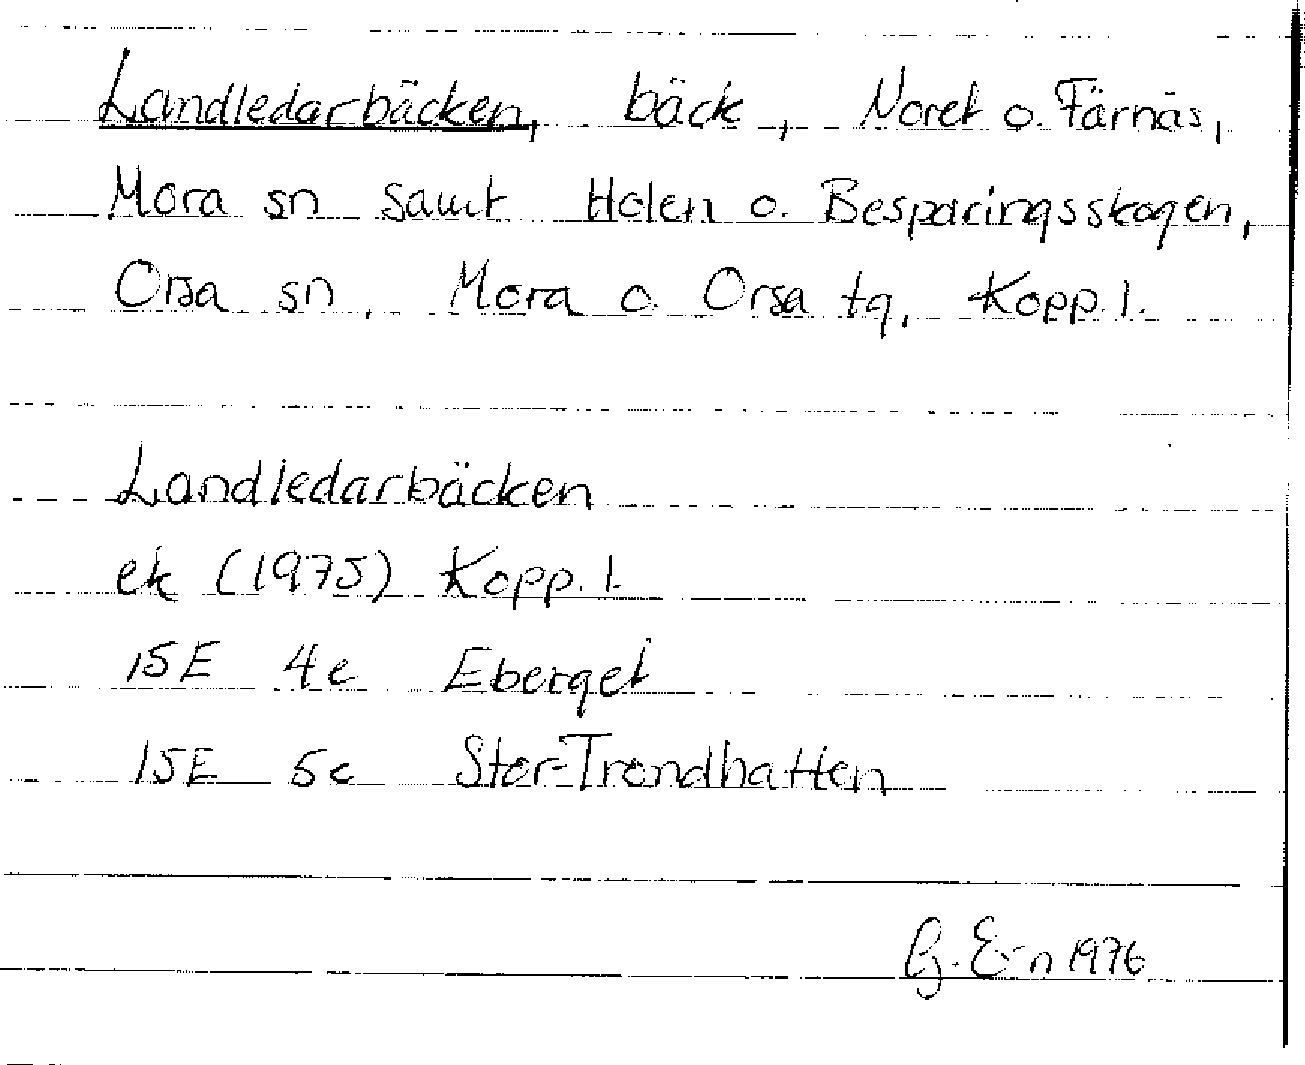 Landledarbäcken, bäck, Noret o. Färnäs,
Mora sn samt Holen o. Besparingsskogen,
Orsa sn, Mora o. Orsa tg, Kopp. l.
Landledarbäcken
ek (1975) Kopp. l.
15E 4e Eberget
15E 5e Stor-Trondhatten
G. E-n 1976